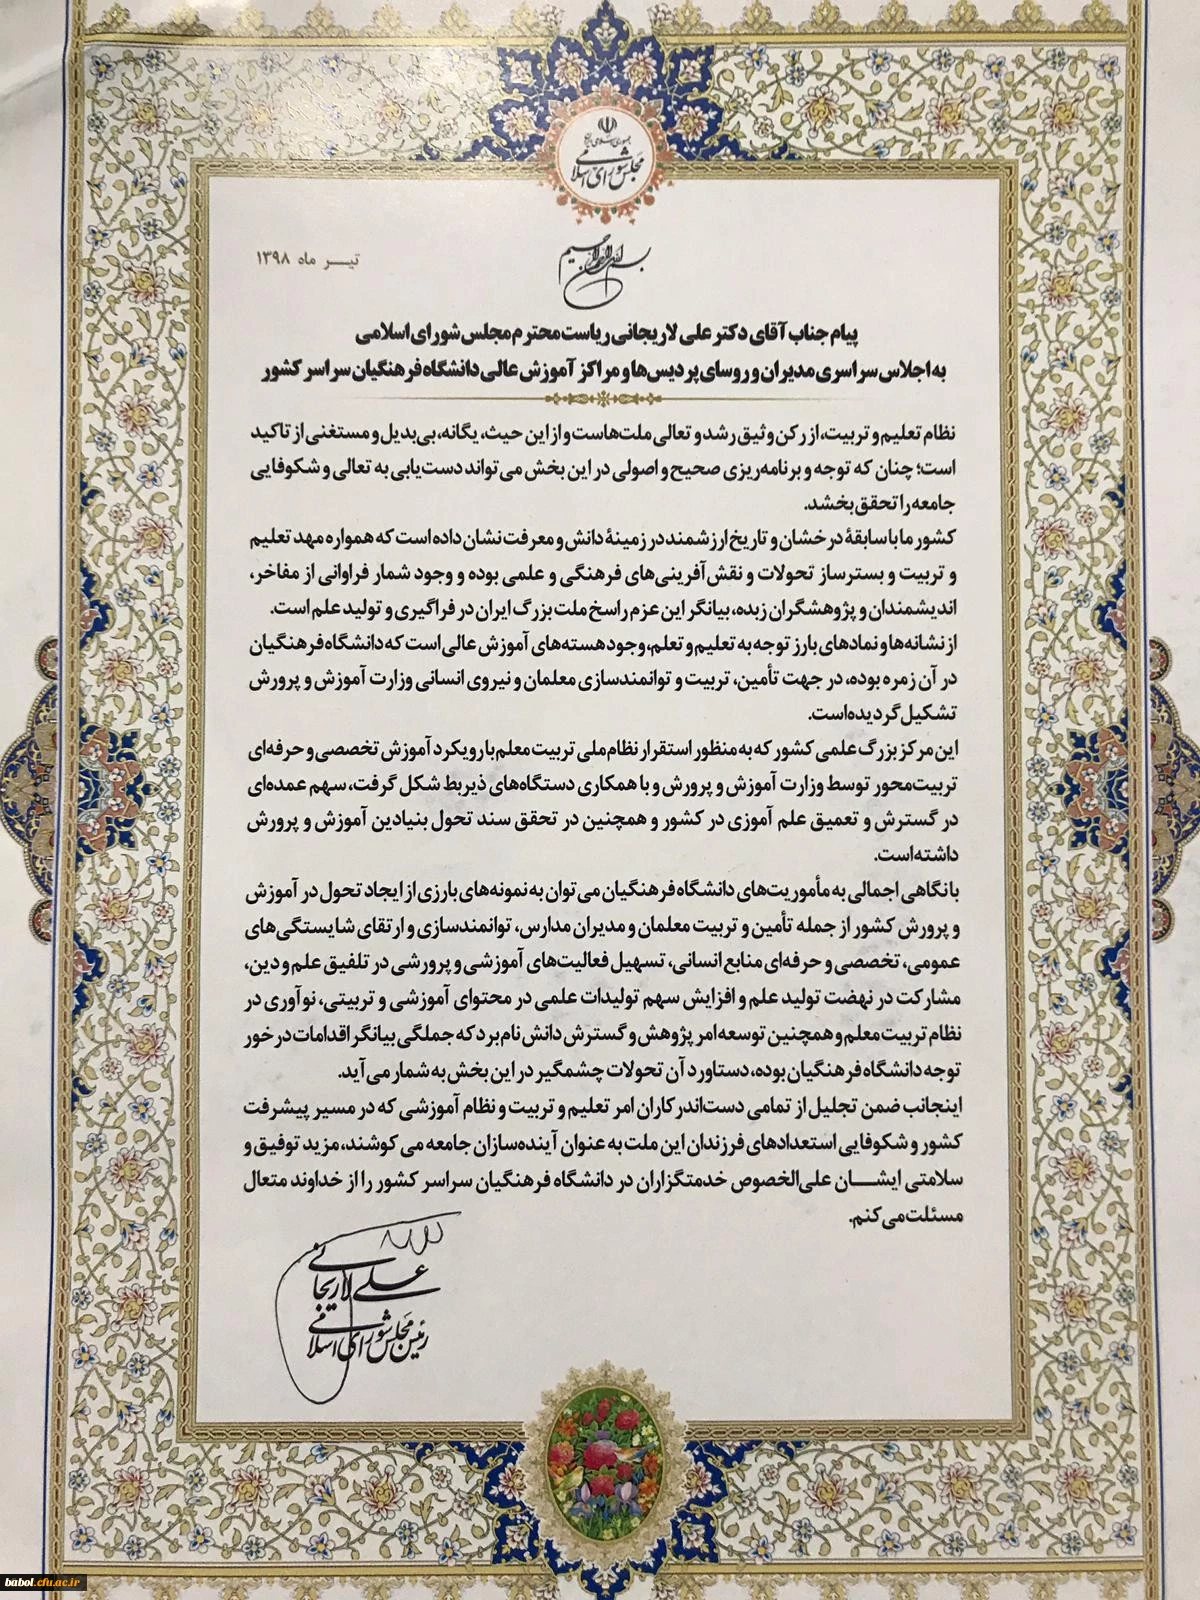 جمهوری اسلامی ایران
مجلس شورای اسلامی
بسم الله الرحمن الرحیم
تیـــر ماه ۱۳۹۸
پیام جناب آقای دکتر علی لاریجانی ریاست محترم مجلس شورای اسلامی
به اجلاس سراسری مدیران و روسای پردیس‌ها و مراکز آموزش عالی دانشگاه فرهنگیان سراسر کشور
نظام تعلیم و تربیت، از رکن وثیق رشد و تعالی ملت‌هاست و از این حیث، یگانه، بی‌بدیل و مستغنی از تاکید
است؛ چنان که توجه و برنامه‌ریزی صحیح و اصولی در این بخش می‌تواند دست‌یابی به تعالی و شکوفایی
جامعه را تحقق بخشد.
کشور ما با سابقۀ درخشان و تاریخ ارزشمند در زمینۀ دانش و معرفت نشان داده است که همواره مهد تعلیم
و تربیت و بسترساز تحولات و نقش‌آفرینی‌های فرهنگی و علمی بوده و وجود شمار فراوانی از مفاخر،
اندیشمندان و پژوهشگران زبده، بیانگر این عزم راسخ ملت بزرگ ایران در فراگیری و تولید علم است.
از نشانه‌ها و نمادهای بارز توجه به تعلیم و تعلم، وجود هسته‌های آموزش عالی است که دانشگاه فرهنگیان
در آن زمره بوده، در جهت تأمین، تربیت و توانمندسازی معلمان و نیروی انسانی وزارت آموزش و پرورش
تشکیل گردیده است.
این مرکز بزرگ علمی کشور که به منظور استقرار نظام ملی تربیت معلم با رویکرد آموزش تخصصی و حرفه‌ای
تربیت‌محور توسط وزارت آموزش و پرورش و با همکاری دستگاه‌های ذیربط شکل گرفت، سهم عمده‌ای
در گسترش و تعمیق علم آموزی در کشور و همچنین در تحقق سند تحول بنیادین آموزش و پرورش
داشته است.
با نگاهی اجمالی به مأموریت‌های دانشگاه فرهنگیان می توان به نمونه‌های بارزی از ایجاد تحول در آموزش
و پرورش کشور از جمله تأمین و تربیت معلمان و مدیران مدارس، توانمندسازی و ارتقای شایستگی‌های
عمومی، تخصصی و حرفه‌ای منابع انسانی، تسهیل فعالیت‌های آموزشی و پرورشی در تلفیق علم و دین،
مشارکت در نهضت تولید علم و افزایش سهم تولیدات علمی در محتوای آموزشی و تربیتی، نوآوری در
نظام تربیت معلم و همچنین توسعه امر پژوهش و گسترش دانش نام برد که جملگی بیانگر اقدامات در خور
توجه دانشگاه فرهنگیان بوده، دستاورد آن تحولات چشمگیر در این بخش به شمار می آید.
اینجانب ضمن تجلیل از تمامی دست‌اندرکاران امر تعلیم و تربیت و نظام آموزشی که در مسیر پیشرفت
کشور و شکوفایی استعدادهای فرزندان این ملت به عنوان آینده‌سازان جامعه می کوشند، مزید توفیق و
سلامتی ایشـــان علی‌الخصوص خدمتگزاران در دانشگاه فرهنگیان سراسر کشور را از خداوند متعال
مسئلت می کنم.
علی لاریجانی
رئیس مجلس شورای اسلامی
babol.cfu.ac.ir